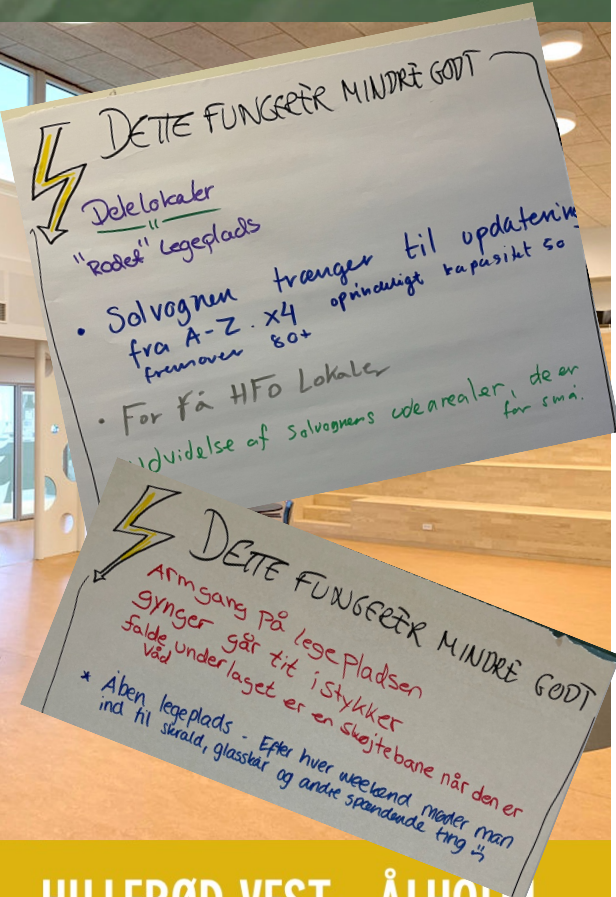 DETTE FUNGERER MINDRE GODT
Delelokaler
"Rodet" Legeplads
• Solvognen trænger til opdatering
fra A-Z. x4 oprindeligt kapasitet 50
fremover 80+
• For få HFO Lokaler
udvidelse af solvognens udearealer, de er
for små.
DETTE FUNGERER MINDRE GODT
Armgang på legepladsen
gynger går tit i stykker
falde underlaget er en skøjtebane når den er
våd
* Åben legeplads - Efter hver weekend møder man
ind til skrald, glasskår og andre spændende ting